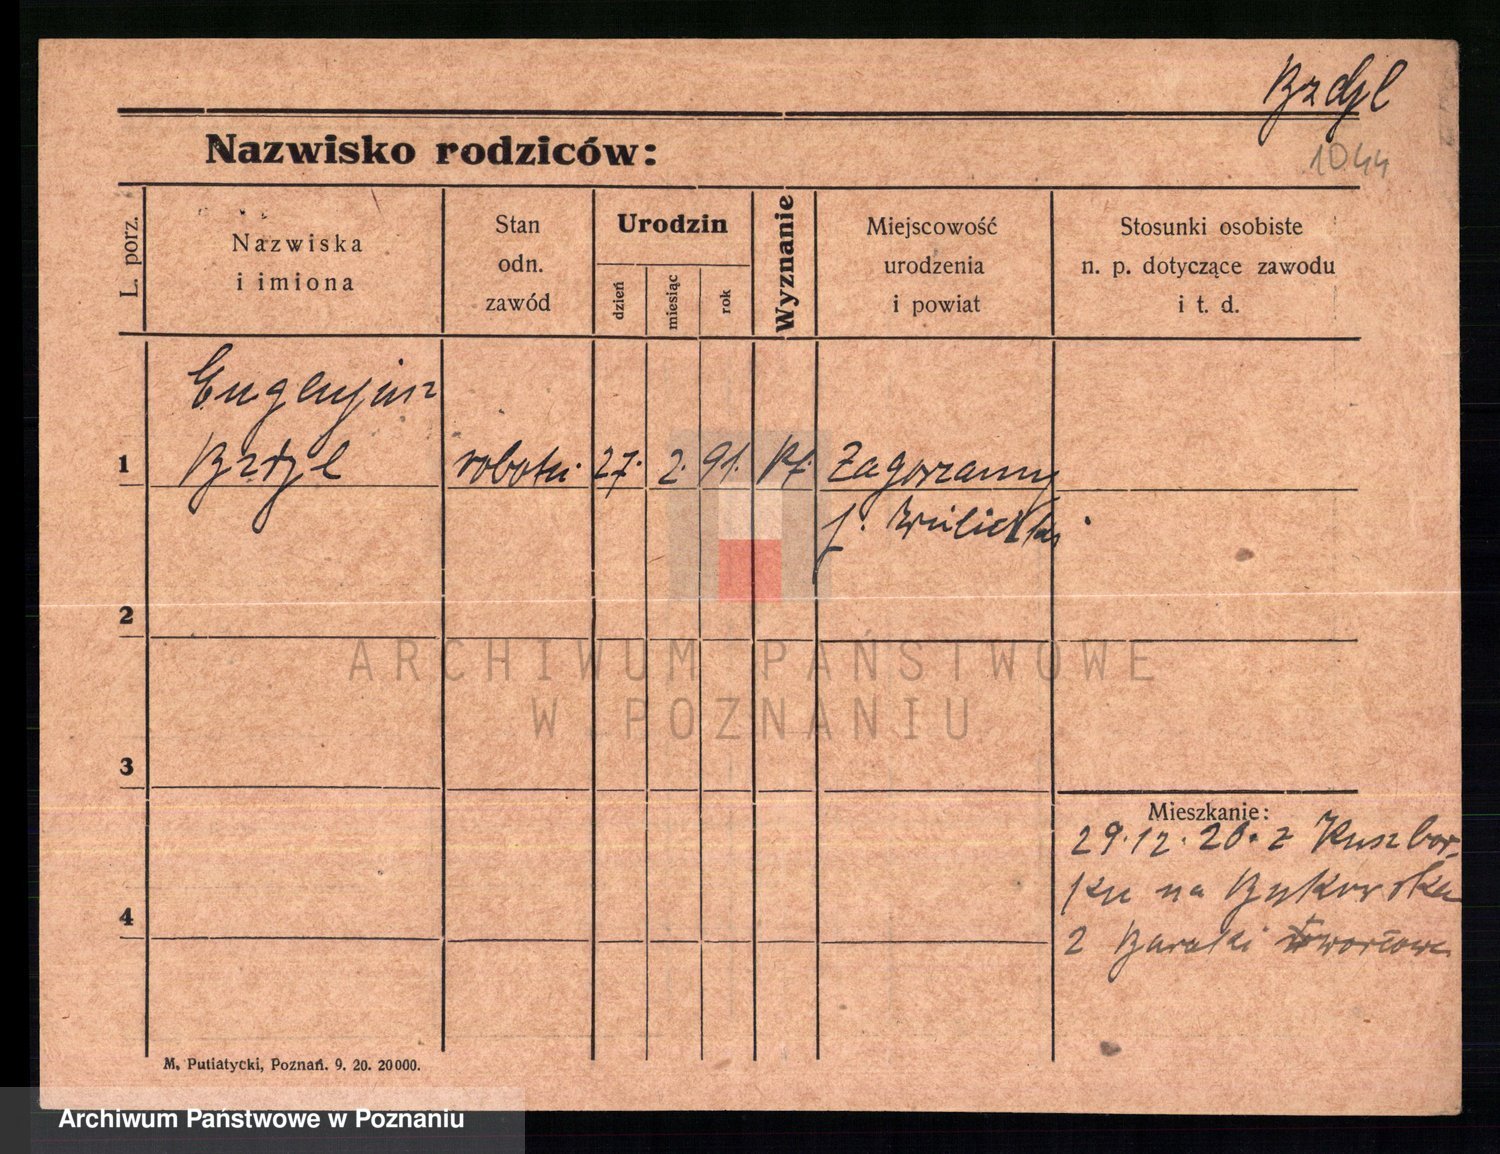 Bzdyl
1044
Nazwisko rodziców:
L. porz.
Nazwiska
i imiona
Stan
odn.
zawód
Urodzin
dzień
miesiąc
rok
Wyznanie
Miejscowość
urodzenia
i powiat
Stosunki osobiste
n. p. dotyczące zawodu
i t. d.
Eugenjusz
1 Bzdyl robotn. 27. 2. 91. Rz. Zagorzanny
2
3
Mieszkanie:
29.12.20. z
na Bukowska
4
2 Baraki
M. Putiatycki, Poznań. 9. 20. 20000.
ARCHIWUM PAŃSTWOWE
W POZNANIU
Archiwum Państwowe w Poznaniu